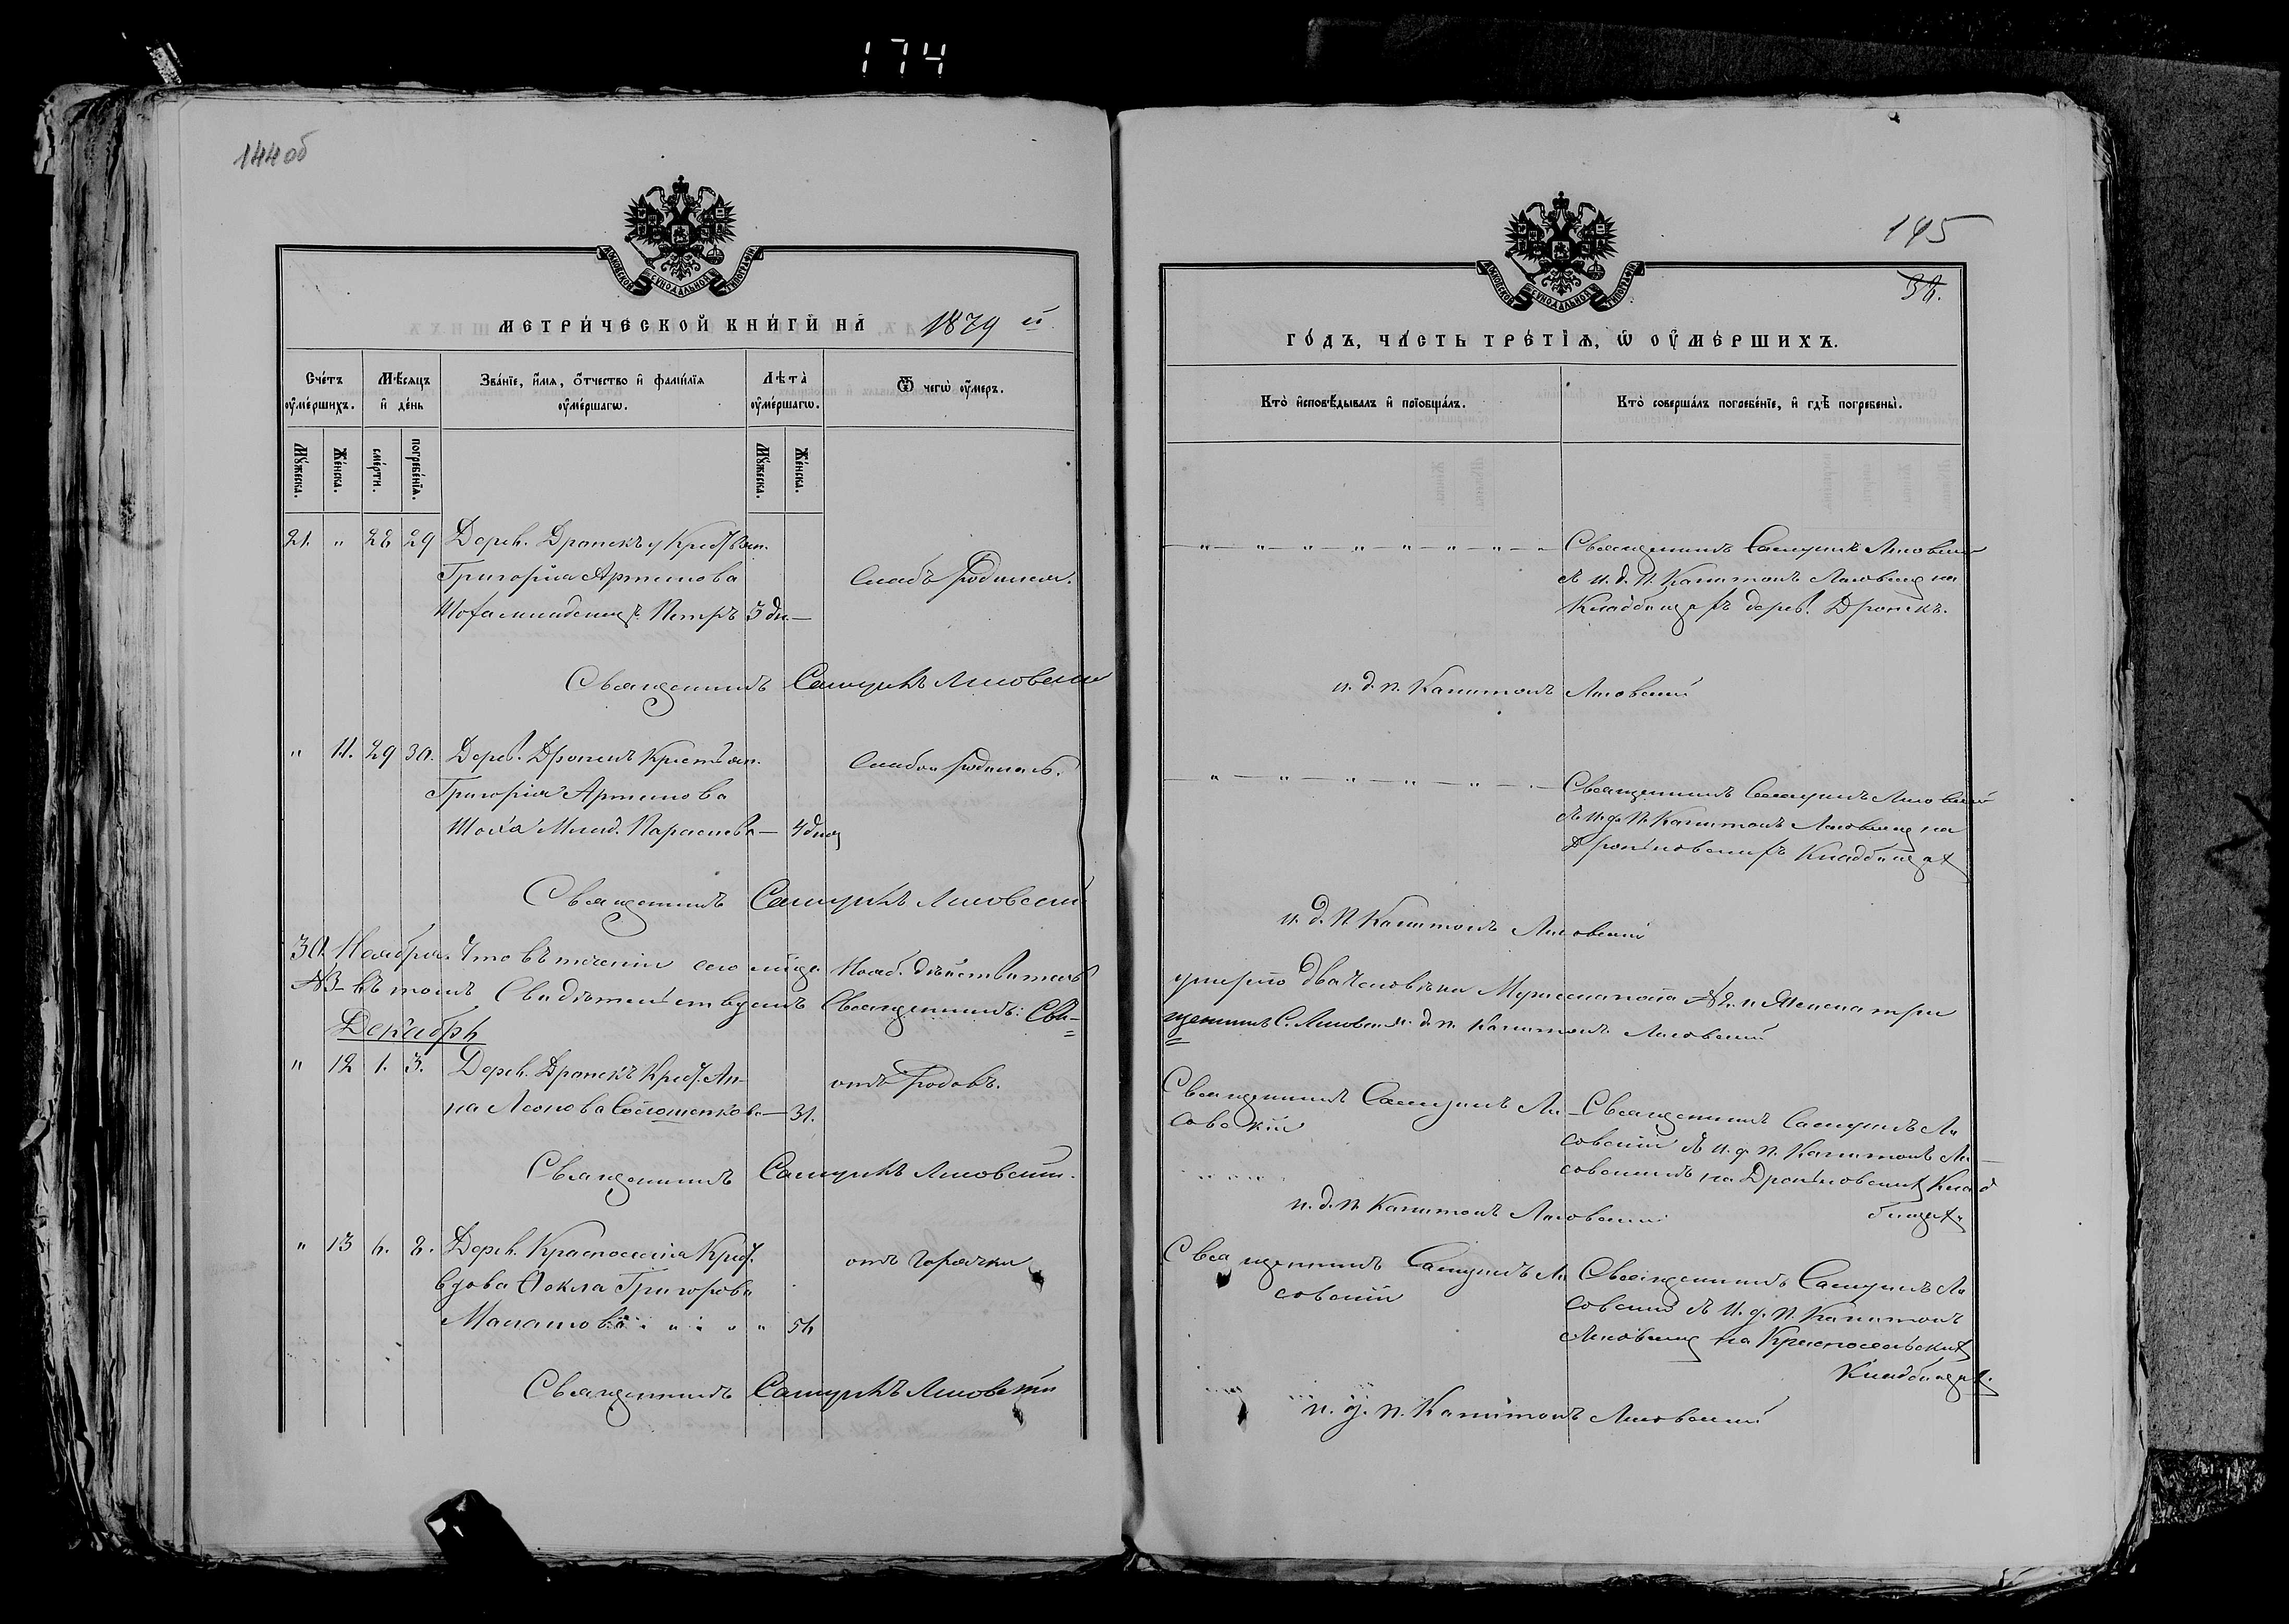 174
144 об
МОСКОВСКОЙ СѴНОДАЛЬНОЙ ТИПОГРАФІИ
МЕТРИ́ЧЕСКОЙ КНИ́ГИ НА̀ 1879 й
Сче́тъ оу҆ме́ршихъ.
Мѣ́сѧцъ и҆ де́нь
Зва́нїе, и҆́мѧ, ѻ҆́тчество и҆ фами́лїѧ оу҆ме́ршагѡ.
Лѣ́та оу҆ме́ршагѡ.
Ѿ чегѡ̀ оу҆́меръ.
Мꙋ́жеска.
Же́нска.
сме́рти.
погребе́нїѧ.
Мꙋ́жеска.
Же́нска.
21. " 28 29 Дерев. Дронскъ у Крест. Григорія Артемова младенец Петръ 5 дн.— Слабъ родился.
Священникъ Самуилъ Лисовскій
" 11. 29 30. Дерев. Дронскъ Крестьян. Григорія Артемова Млад. Параскева — 4 дня Слабою родилась.
Священникъ Самуилъ Лисовскій
30. Ноября. Что въ теченіи сего м-ца Нояб. дѣйствительно
№3 въ томъ Свидѣтельствуемъ Священникъ: Свя-
Декабрь
" 12 1. 3. Дерев. Дронскъ Крест. Анна Леонова — 31. отъ родовъ.
Священникъ Самуилъ Лисовскій.
" 13 6. 8. Дерев. Красноселіе Крест. вдова Ѳекла Григорова " " " 56 отъ горячки
Священникъ Самуилъ Лисовскій
145
36.
МОСКОВСКОЙ СѴНОДАЛЬНОЙ ТИПОГРАФІИ
ГО́ДЪ, ЧА́СТЬ ТРЕ́ТЇѦ, Ѡ҆ ОУ҆МЕ́РШИХЪ.
Кто̀ и҆сповѣ́дывалъ и҆ прїобща́лъ.
Кто̀ соверша́лъ погребе́нїе, и҆ гдѣ̀ погребены̀.
" " " " " " " "
Священникъ Самуилъ Лисовскій
съ и. д. п. Капитономъ Лисовским на
Кладбищѣ въ дерев. Дронскъ.
и. д. п. Капитонъ Лисовскій
" " " " "
Священникъ Самуилъ Лисовскій
съ и. д. п. Капитономъ Лисовским на
Кладбищѣ
и. д. п. Капитонъ Лисовскій
умерло два человѣка Мужеска пола №2. и Женска три
щенникъ С. Лисовскій и. д. п. Капитонъ Лисовскій
Священникъ Самуилъ Ли-
совскій
Священникъ Самуилъ Ли
совскій съ и. д. п. Капитономъ Ли-
совскимъ на Клад
бищѣ.
и. д. п. Капитонъ Лисовскій
Священникъ Самуилъ Ли
совскій
Священникъ Самуилъ Ли
совскій съ и. д. п. Капитономъ
Лисовским на Красносельскимъ
Кладбищѣ.
и. д. п. Капитонъ Лисовскій